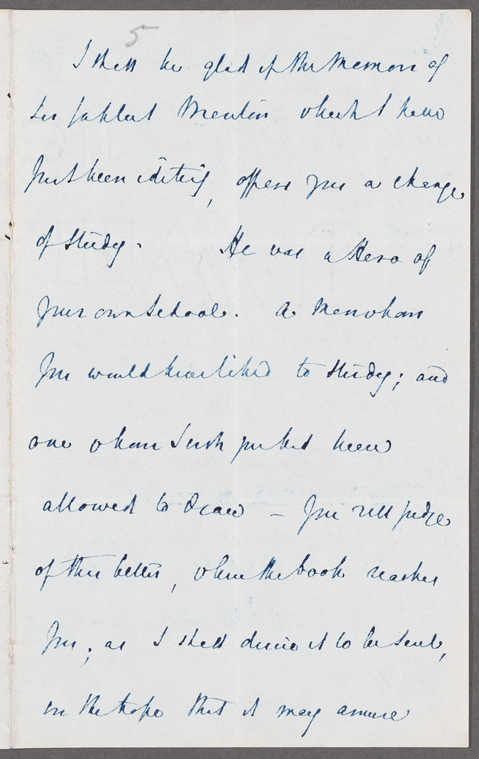 5
I shall be glad if the Memoir of
Sir Herbert Merewether which I have
just been editing, offers you a change
of Study. He was a Hero of
your own School. A Man whom
you would have liked to study; and
one whom I wish you had been
allowed to draw – You will judge
of this better, when the book reaches
you; as I shall desire it to be sent,
in the hope that it may amuse